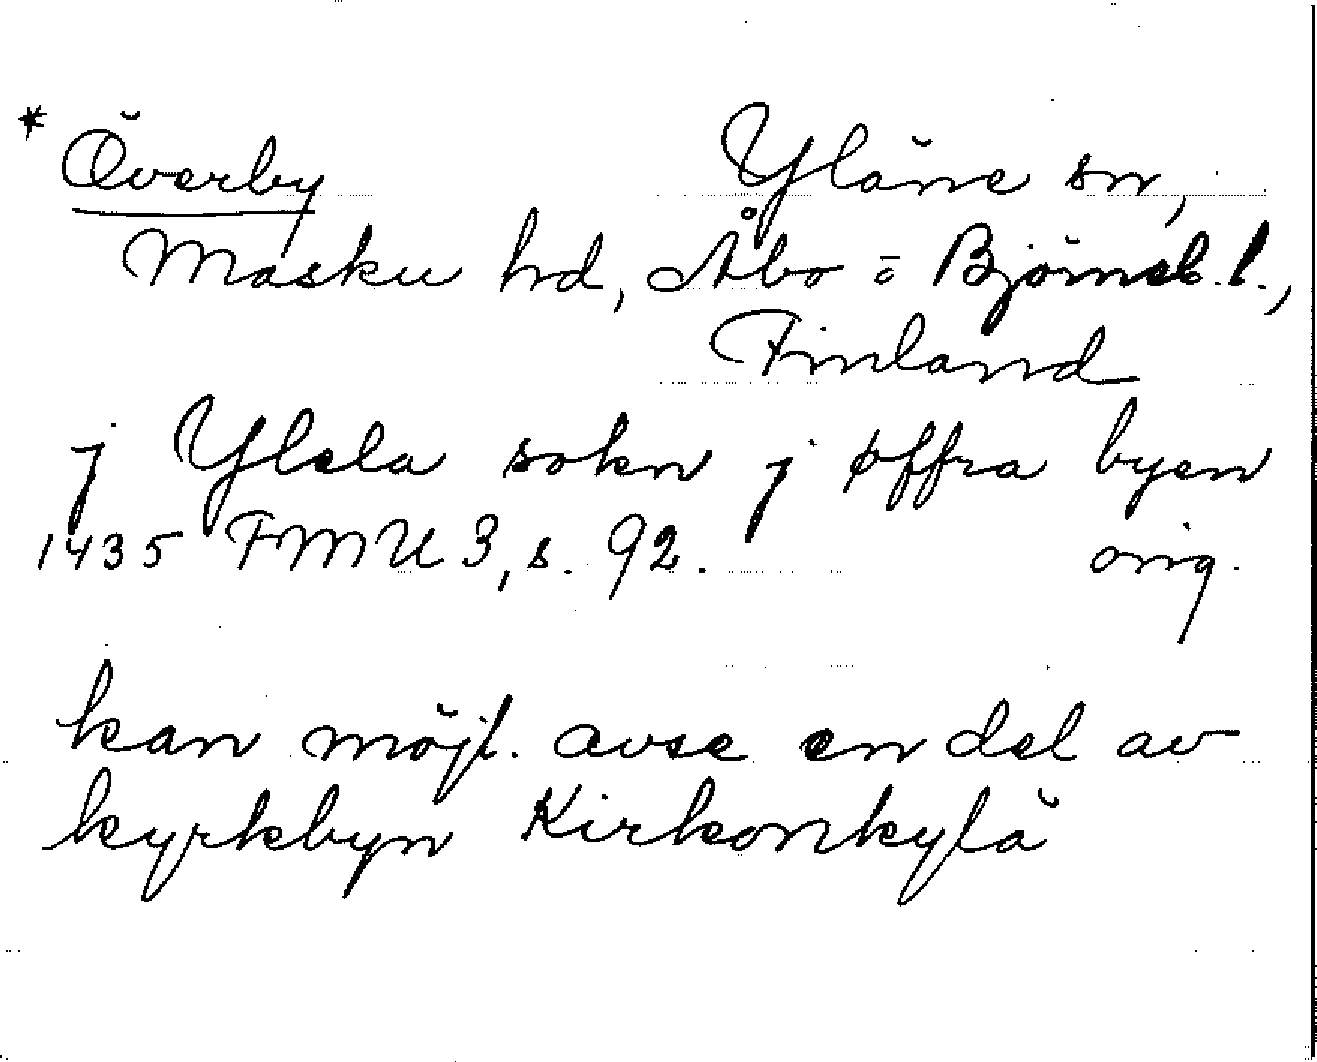 * Överby Yläne sn,
Masku hd, Åbo o Björneb. l.,
Finland
j Ylela sokn j øffra byen
1435 FMU 3, s. 92. orig.
kan möjl. avse en del av
kyrkbyn Kirkonkylä